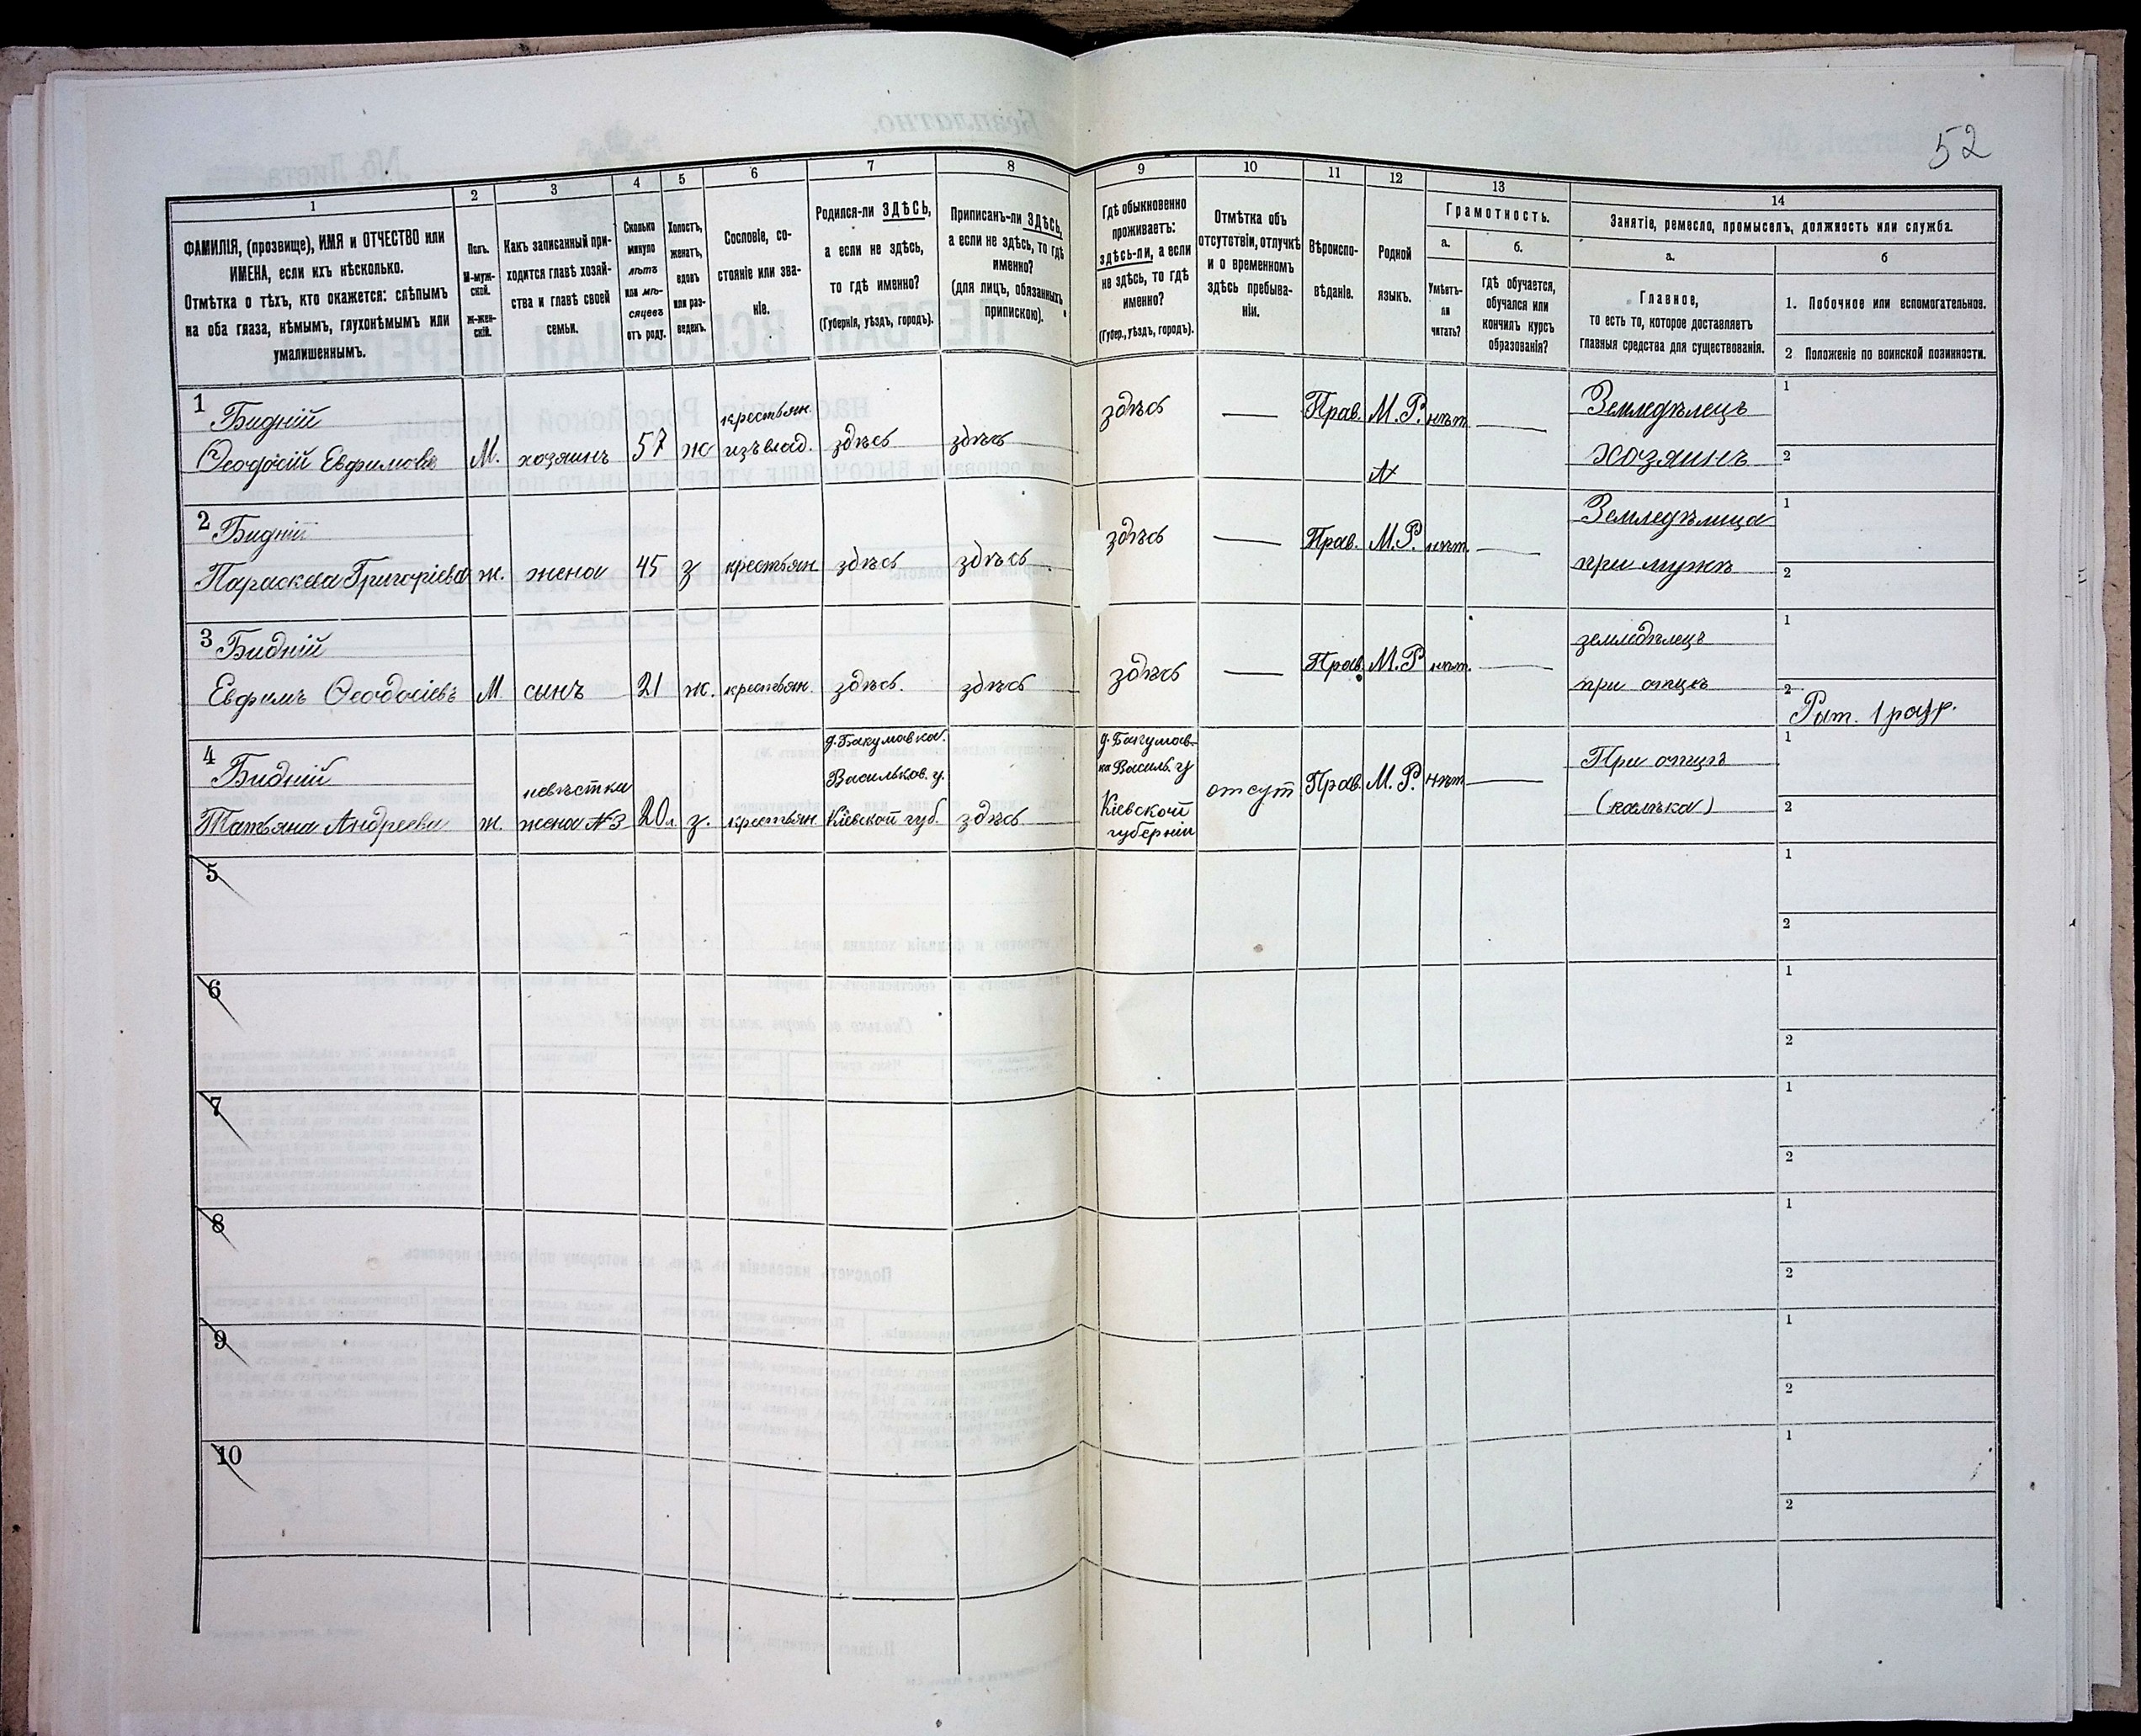 52
1
2
3
4
5
6
7
8
9
10
11
12
13
14
ФАМИЛІЯ, (прозвище), ИМЯ и ОТЧЕСТВО или
ИМЕНА, если ихъ нѣсколько.
Отмѣтка о тѣхъ, кто окажется: слѣпымъ
на оба глаза, нѣмымъ, глухонѣмымъ или
умалишеннымъ.
Полъ.
М-муж-
ской.
ж-жен-
скій.
Какъ записанный при-
ходится главѣ хозяй-
ства и главѣ своей
семьи.
Сколько
минуло
лѣтъ
или мѣ-
сяцевъ
отъ роду.
Холостъ,
женатъ,
вдовъ
или раз-
веденъ.
Сословіе, со-
стояніе или зва-
ніе.
Родился-ли ЗДѢСЬ,
а если не здѣсь,
то гдѣ именно?
(Губернія, уѣздъ, городъ).
Приписанъ-ли ЗДѢСЬ,
а если не здѣсь, то гдѣ
именно?
(для лицъ, обязанныхъ
припискою).
Гдѣ обыкновенно
проживаетъ:
здѣсь-ли, а если
не здѣсь, то гдѣ
именно?
(Губер., уѣздъ, городъ).
Отмѣтка объ
отсутствіи, отлучкѣ
и о временномъ
здѣсь пребыва-
ніи.
Вѣроиспо-
вѣданіе.
Родной
языкъ.
Грамотность.
а.
Умѣетъ-
ли
читать?
б.
Гдѣ обучается,
обучался или
кончилъ курсъ
образованія?
Занятіе, ремесло, промыселъ, должность или служба.
а.
Главное,
то есть то, которое доставляетъ
главныя средства для существованія.
б
1. Побочное или вспомогательное.
2 Положеніе по воинской повинности.
1
Бидній
Ѳеодосій Евфимовъ
М.
хозяинъ
57
ж
крестьян.
изъ влад.
здѣсь
здѣсь
здѣсь
—
Прав.
М.Р.
нѣт
—
Земледѣлецъ
хозяинъ
1
2
2
Бидній
Параскева Григоріева
ж.
жена
45
з
крестьян.
здѣсь
здѣсь
здѣсь
—
Прав.
М.Р.
нѣт.
—
Земледѣлица
при мужѣ
1
2
3
Бидній
Евфимъ Ѳеодосіевъ
М
сынъ
21
ж.
крестьян.
здѣсь.
здѣсь
здѣсь
—
Прав.
М.Р
нѣт.
—
земледѣлецъ
при отцѣ
1
2
Рат. 1 разр.
4
Бидній
Татьяна Андреева
ж.
невѣстка
жена №3
20л
з.
крестьян
д. Бакумовка.
Васильков. у.
Кіевской губ.
здѣсь
д. Бакумов-
ка Василь. у
Кіевской
губерніи
отсут
Прав.
М.Р.
нѣт
—
При отцѣ
1
2
5
1
2
6
1
2
7
1
2
8
1
2
9
1
2
10
1
2